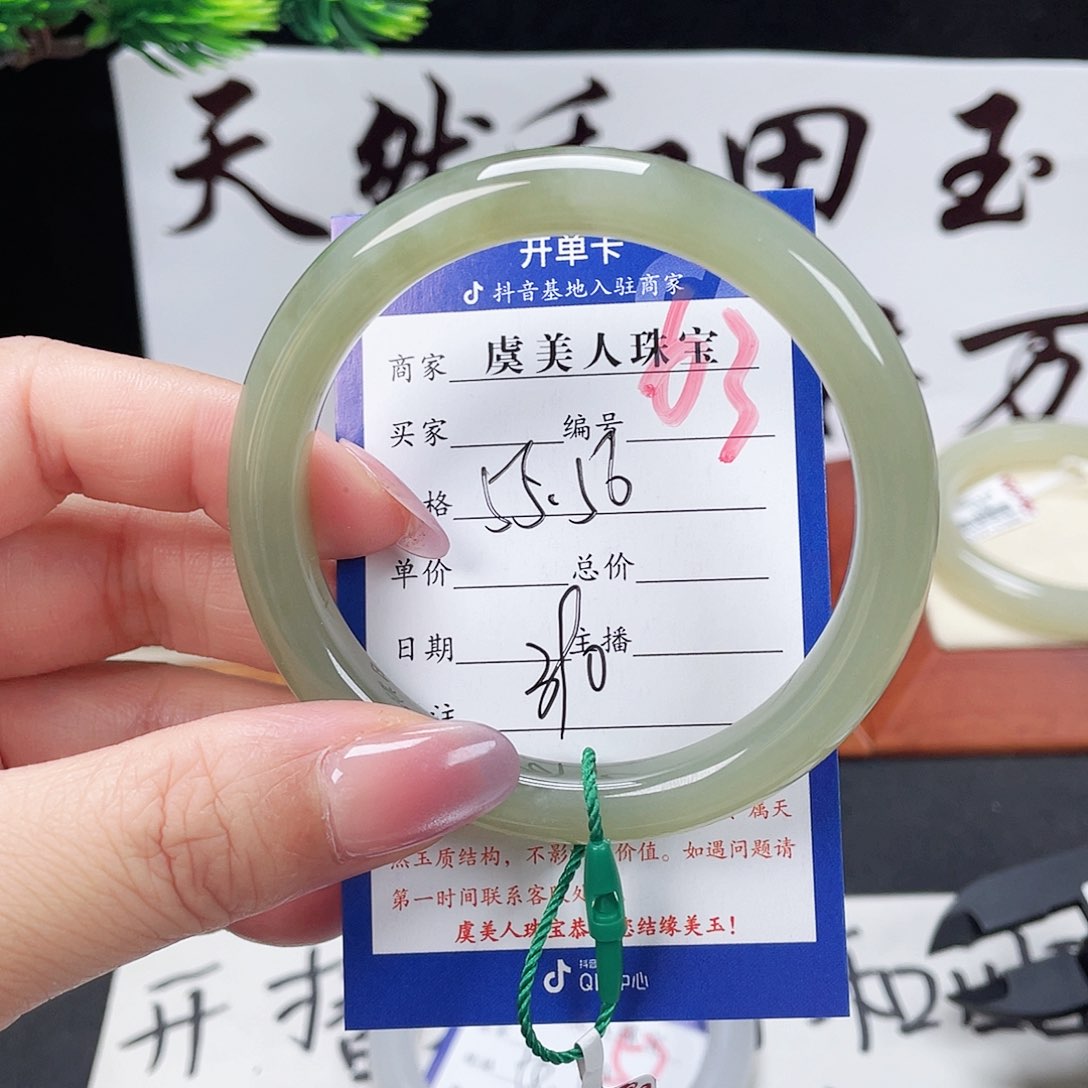 天然和田玉
万
开单卡
抖音基地入驻商家
商家 虞美人珠宝
63
买家 编号
格 55.56
单价 总价
日期 主播
注
、属天
然玉质结构，不影 价值。如遇问题请
第一时间联系客服处
虞美人珠宝恭 您结缘美玉！
抖音
QIC中心
开